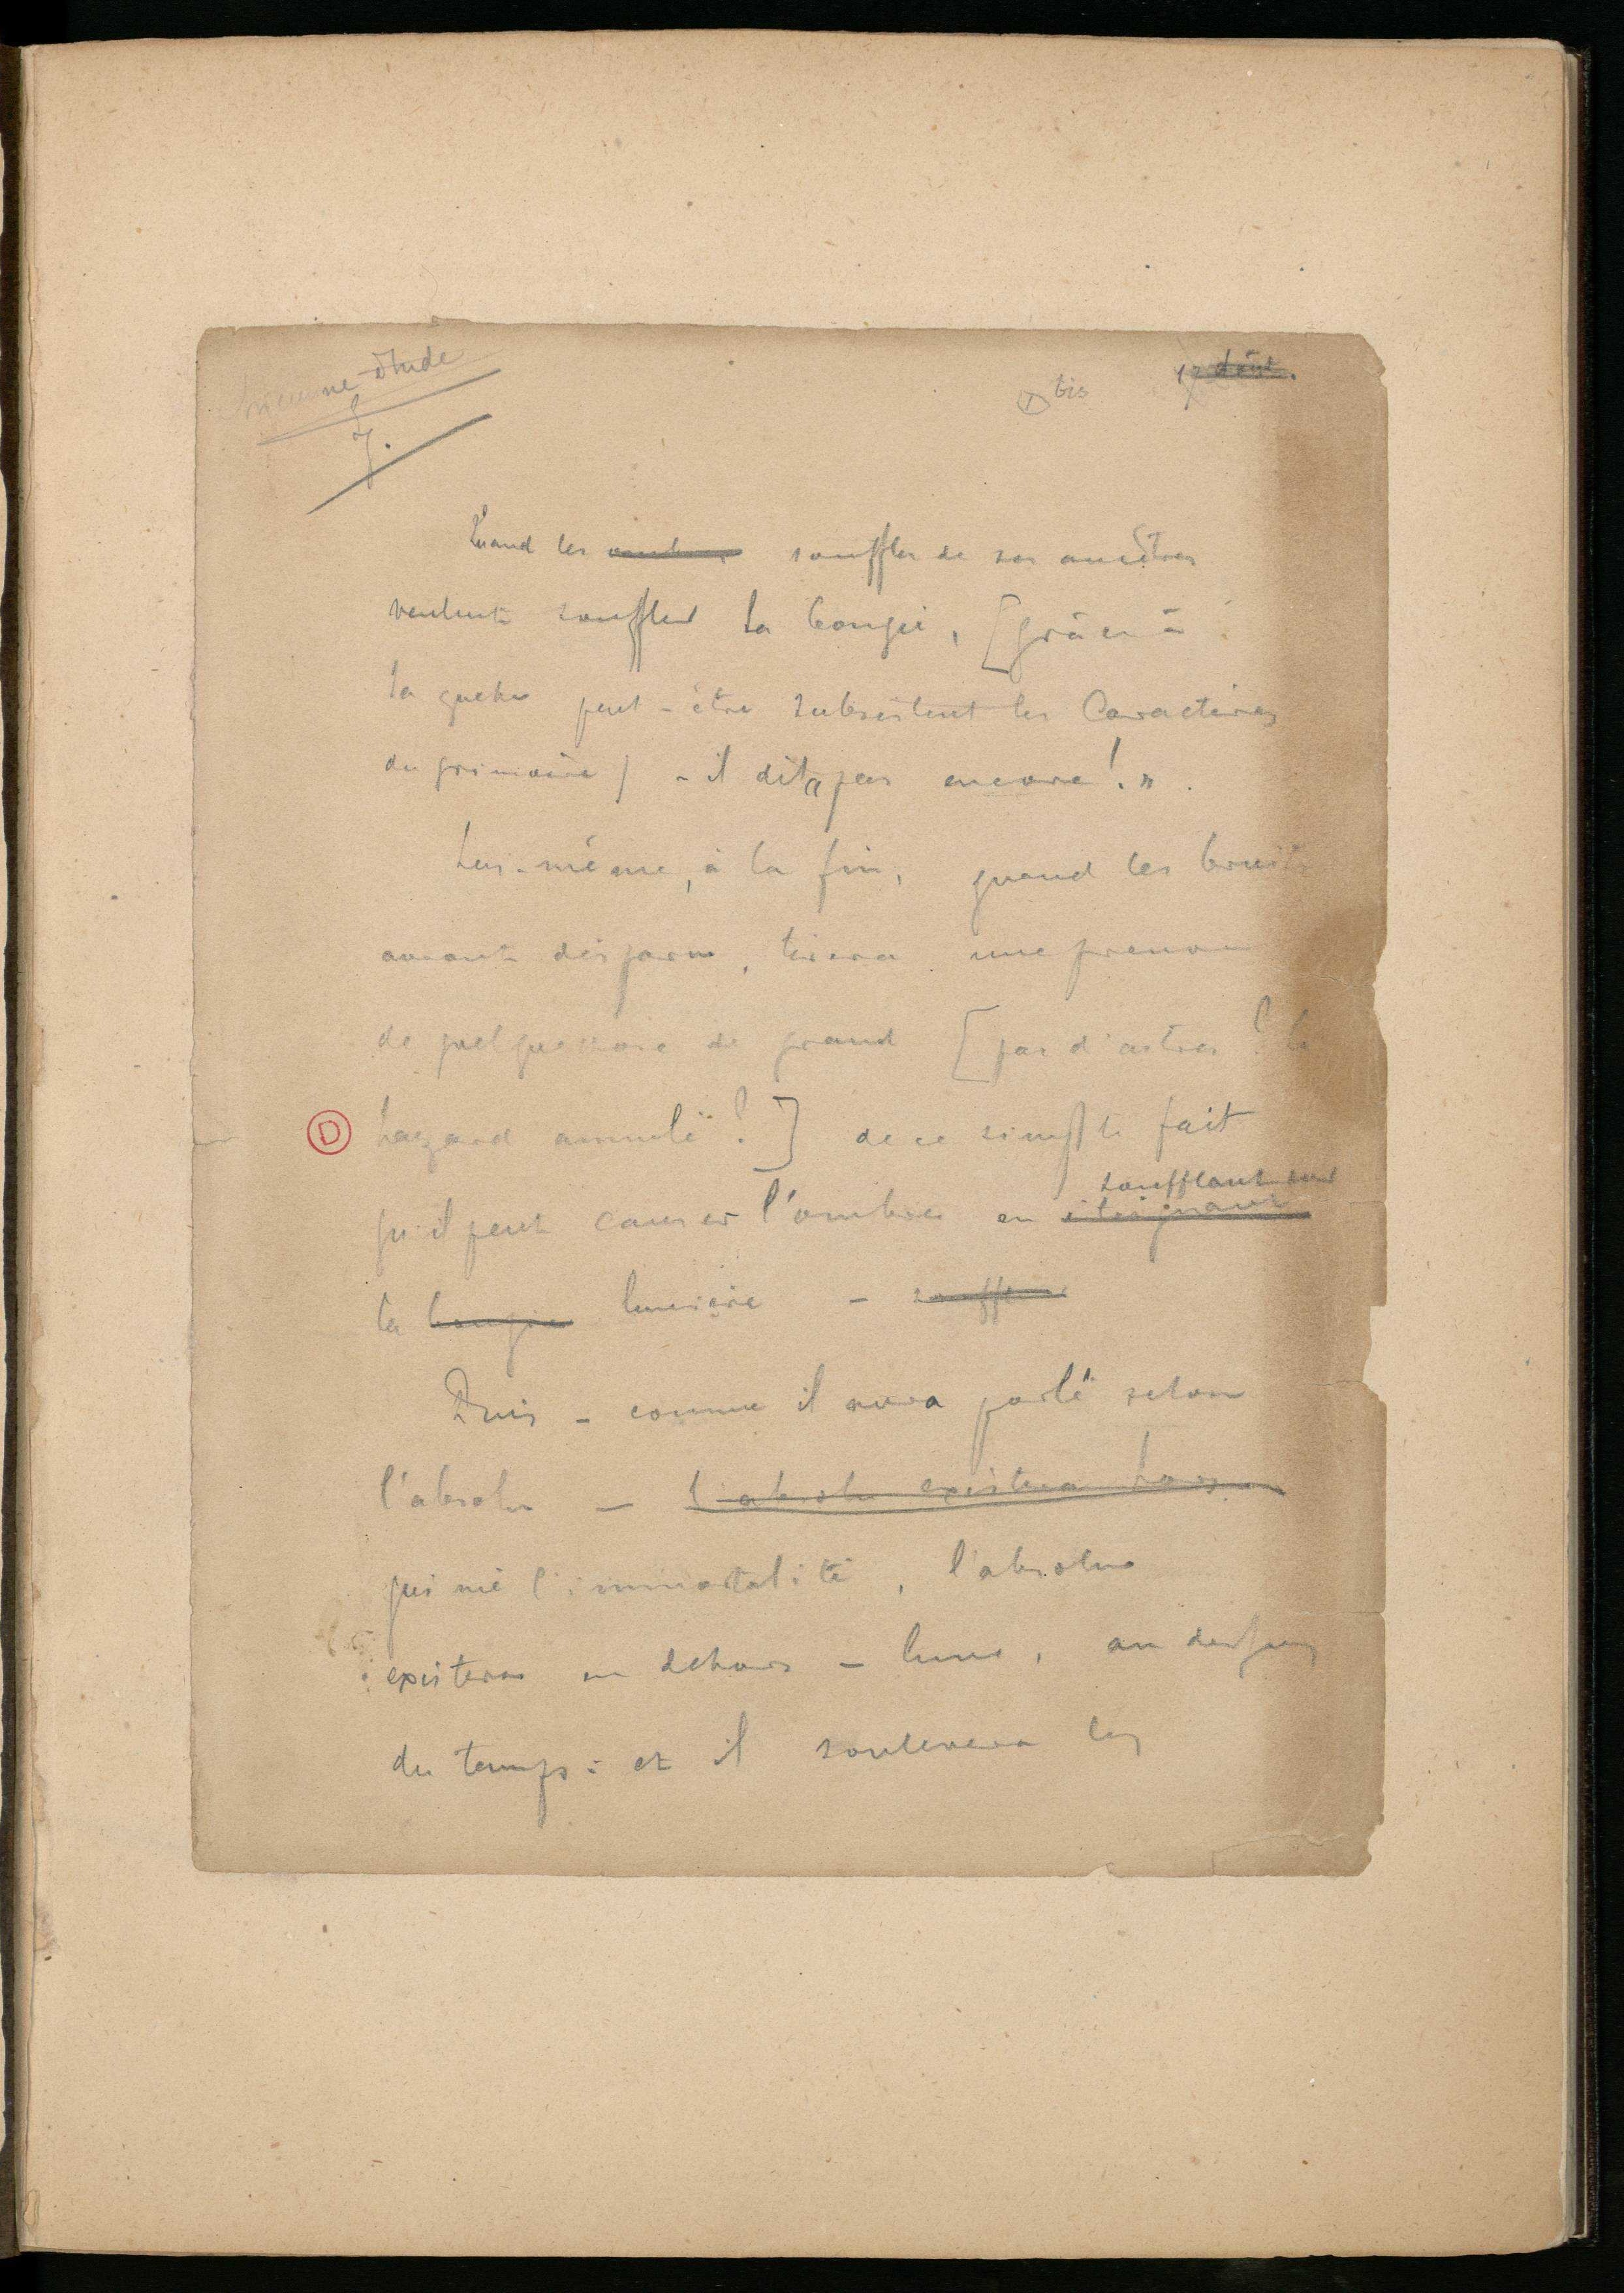 Ancienne étude
J.
bis
Quand les souffles de ses ancêtres
veulent souffler la bougie, [grâce à
la quelle peut-être subsistent les caractères
du grimoire) - il dit "pas encore!".
Lui-même, à la fin, quand les bruits
auront disparu, tirera une preuve
de quelque chose de grand [pas d'astres? le
D hazard annulé?] de ce simple fait
soufflant sur
qu'il peut causer l'ombre en éteignant
la bougie lumière - souffler
Puis - comme il aura parlé selon
l'absolu - l'absolu existera hors
qui nie l'immortalité, l'absolu
existera en dehors - lune, au dessus
du temps: et il soulevera les